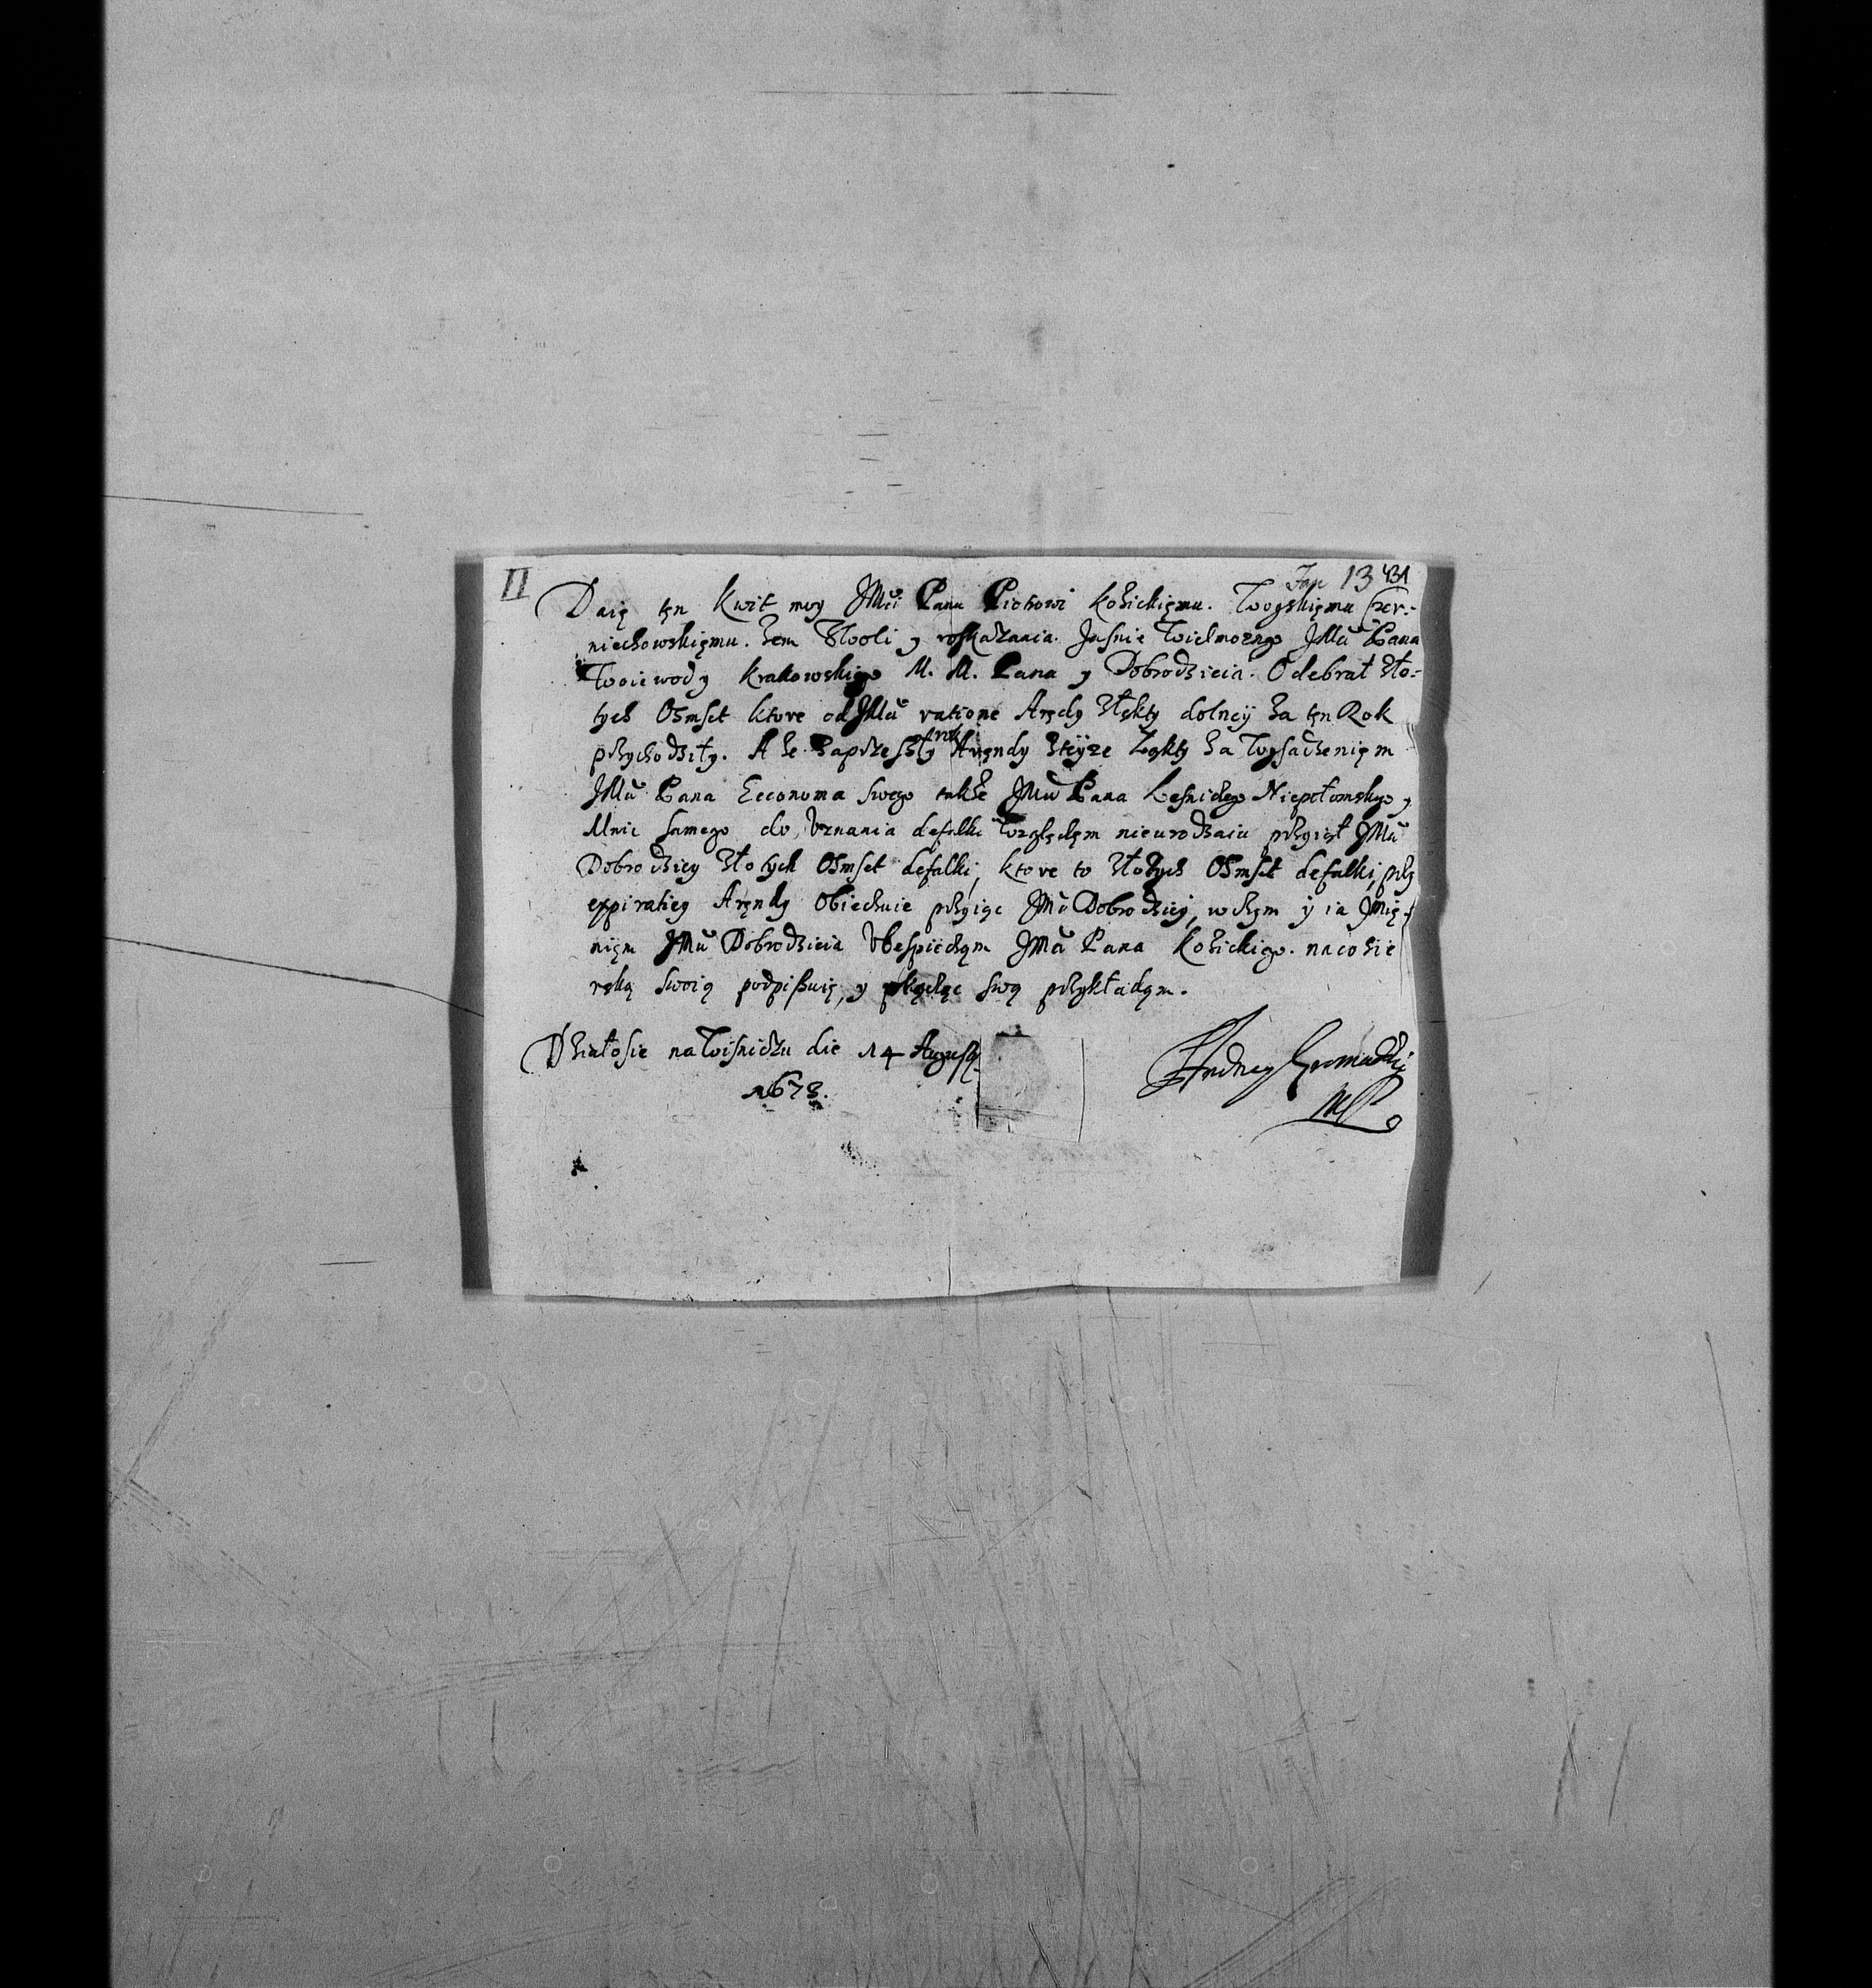 II
Fap 13 431
Daię tęn Kwit moy JMci Panu Piotrowi Kozickięmu. Woyskięmu Czer:-
niechowskięmu. Zem Zwoli y roskazania. Jasnie Wielmoznego JMci Pana
Woiewody Krakowskiego M. M. Pana y Dobrodzieia. Odebrał Zło:-
tych Osmset ktore od JMci ratione Arędy Złękty dolney za tęn Rok
przychodziły. A ze zaprzeszły rok Aręndy teyze Łękty za Wysadzenięm
JMci Pana Economa swego takze JMci Pana Lesniczego Niepołomskyo y
Mnie samego do Uznania defalki Względęm nieurodzaiu przyiął JMci
Dobrodziey Złotych Osmset defalki, ktore to Złotych Osmset defalki, przy
expiratiey Aręndy Obiecuie przyiąc JMci Dobrodziey, w czym y ia Jmię-
nięm JMci Dobrodzieia Ubespieczam JMci Pana Kozickiego. na co sie
ręką swoią podpisuię, y pieczęc swą przykładąm.
Działosie na Wisniczu die 14 Augusti
1673.
Andrzey Gromadzki
MP